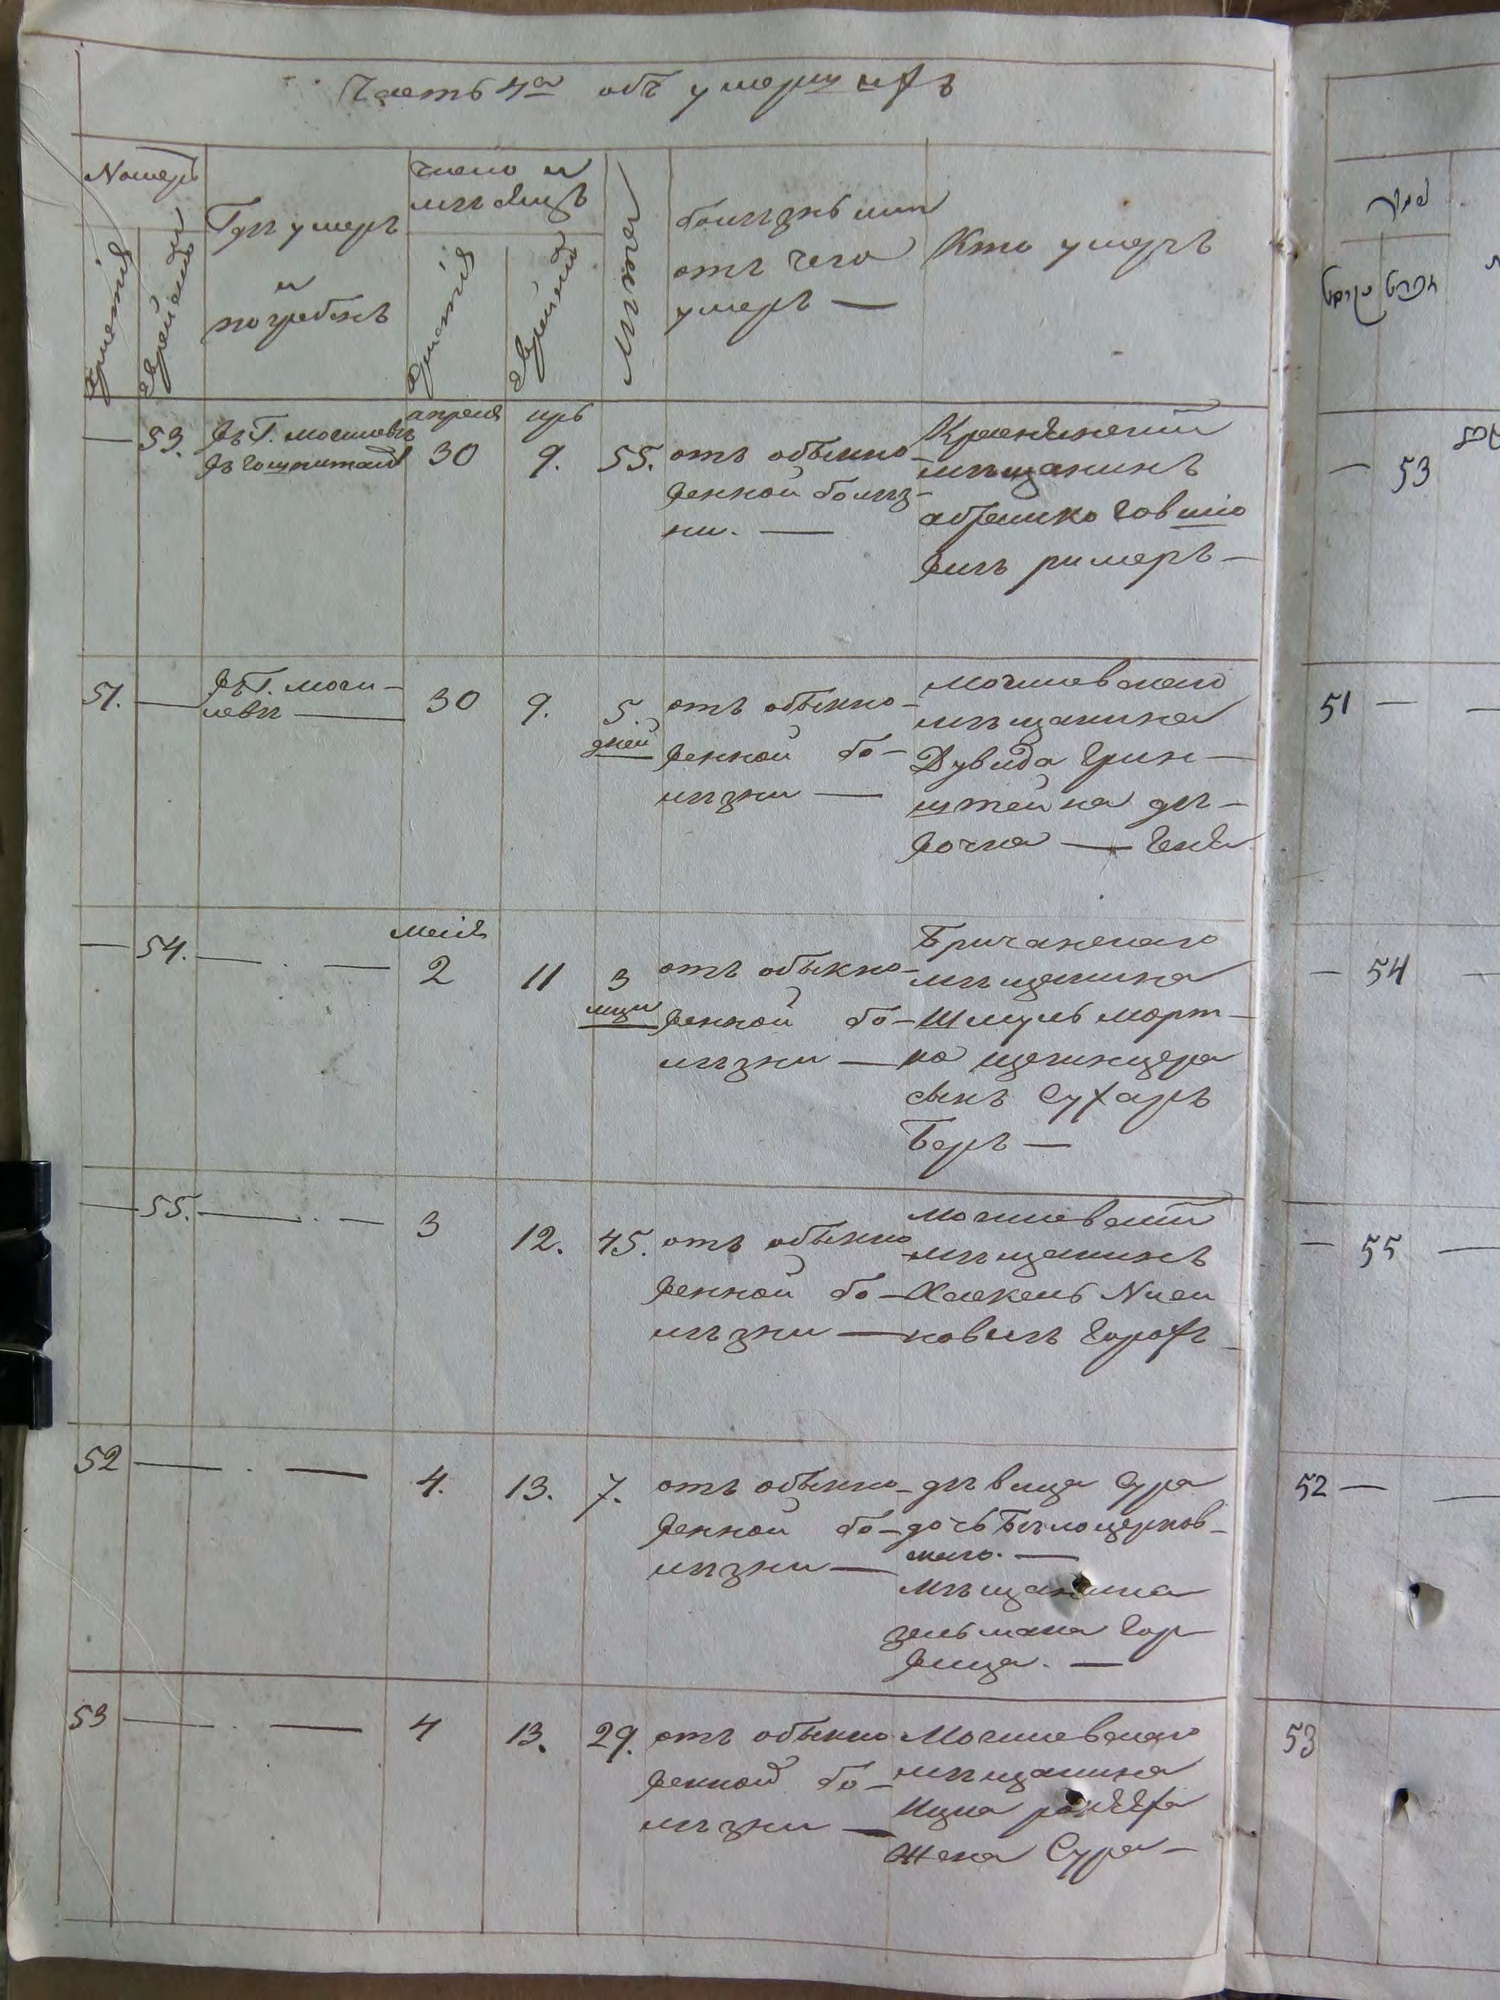 Часть 4а объ умершихъ
Номеръ
Женскія
Мужескій
Гдѣ умеръ
и
погребенъ
Число и
мѣсяцъ
Христія
Еврейскій
Лѣта
болѣзнь или
отъ чего
умеръ —
Кто умеръ
— 53. въ Г. Могилевѣ
въ гошпиталѣ
апреля 30
иръ 9. 55.
отъ обыкно
венной болѣз-
ни. —
мѣщанинъ
абрамко Говшио
вичъ ример —
51. — въ Г. Моги-
левѣ —
30 9. 5.
дней
отъ обыкно-
венной бо-
лѣзни —
Могилевскаго
мѣщанина
Дувида Грин-
штейна дѣ-
вочка — Геня
— 54. — . —
маія
2 11 3
мцы
отъ обыкно-
венной бо-
лѣзни —
Бричанскаго
мѣщанина
Шмуль Морт-
ка
сынъ Сухаръ
Беръ —
— 55. — . — 3 12. 45.
отъ обыкно
венной бо-
лѣзни —
Могилевскій
мѣщанинъ
Хаскель Нисен
ковичъ
52 — . — 4. 13. 7.
отъ обыкно-
венной бо-
лѣзни —
дѣвица Сура
дочь Бѣлоцерков-
скаго. —
мѣщанина
Зельмана Гор
вица. —
53 — . — 4 13. 29.
отъ обыкно
венной бо-
лѣзни —
Могилевскаго
мѣщанина
Ицка
жена Сура —
— 53
51 —
— 54 —
— 55 —
52 —
53